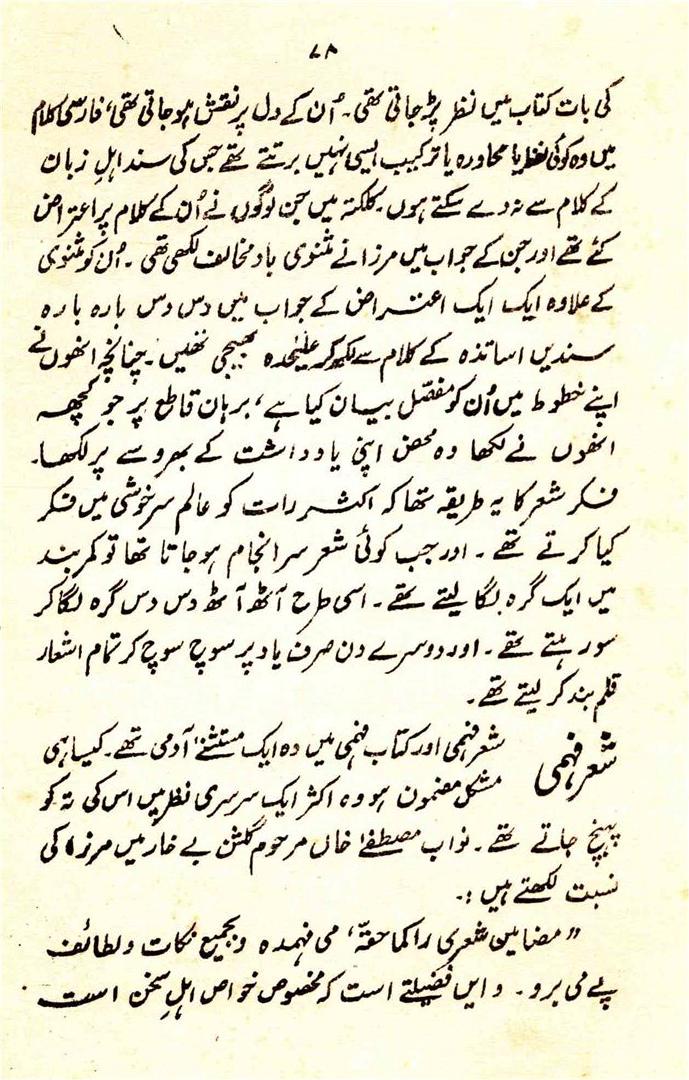 ۷۸
کی بات کتاب میں نظر پڑ جاتی تھی۔ اُن کے دل پر نقش ہو جاتی تھی، فارسی کلام
میں وہ کوئی لفظ یا محاورہ یا ترکیب ایسی نہیں برتتے تھے جس کی سند اہلِ زبان
کے کلام سے نہ دے سکتے ہوں۔ کلکتہ میں جن لوگوں نے اُن کے کلام پر اعتراض
کئے تھے اور جن کے جواب میں مرزا نے مثنوی باد مخالف لکھی تھی۔ اُن کو مثنوی
کے علاوہ ایک ایک اعتراض کے جواب میں دس دس بارہ بارہ
سندیں اساتذہ کے کلام سے لکھ کر علیٰحدہ بھیجی تھیں۔ چنانچہ انھوں نے
اپنے خطوط میں اُن کو مفصّل بیان کیا ہے، برہان قاطع پر جو کچھ
انھوں نے لکھا وہ محض اپنی یادداشت کے بھروسے پر لکھا۔
فکر شعر کا یہ طریقہ تھا کہ اکثر رات کو عالم سرخوشی میں فکر
کیا کرتے تھے۔ اور جب کوئی شعر سرانجام ہو جاتا تھا تو کمر بند
میں ایک گرہ لگا لیتے تھے۔ اسی طرح آٹھ آٹھ دس دس گرہ لگا کر
سو رہتے تھے۔ اور دوسرے دن صرف یاد پر سوچ سوچ کر تمام اشعار
قلم بند کر لیتے تھے۔
شعر فہمی شعر فہمی اور کتاب فہمی میں وہ ایک مستثنےٰ آدمی تھے۔ کیسا ہی
مشکل مضمون ہو وہ اکثر ایک سرسری نظر میں اس کی تہ کو
پہنچ جاتے تھے۔ نواب مصطفےٰ خاں مرحوم گلشن بے خار میں مرزا کی
نسبت لکھتے ہیں :۔
" مضامین شعری را کما حقہٗ، می فہمدہ و بجمیع نکات و لطائف
پے می برو۔ و ایں فضیلتے است کہ مخصوص خواص اہلِ سخن است